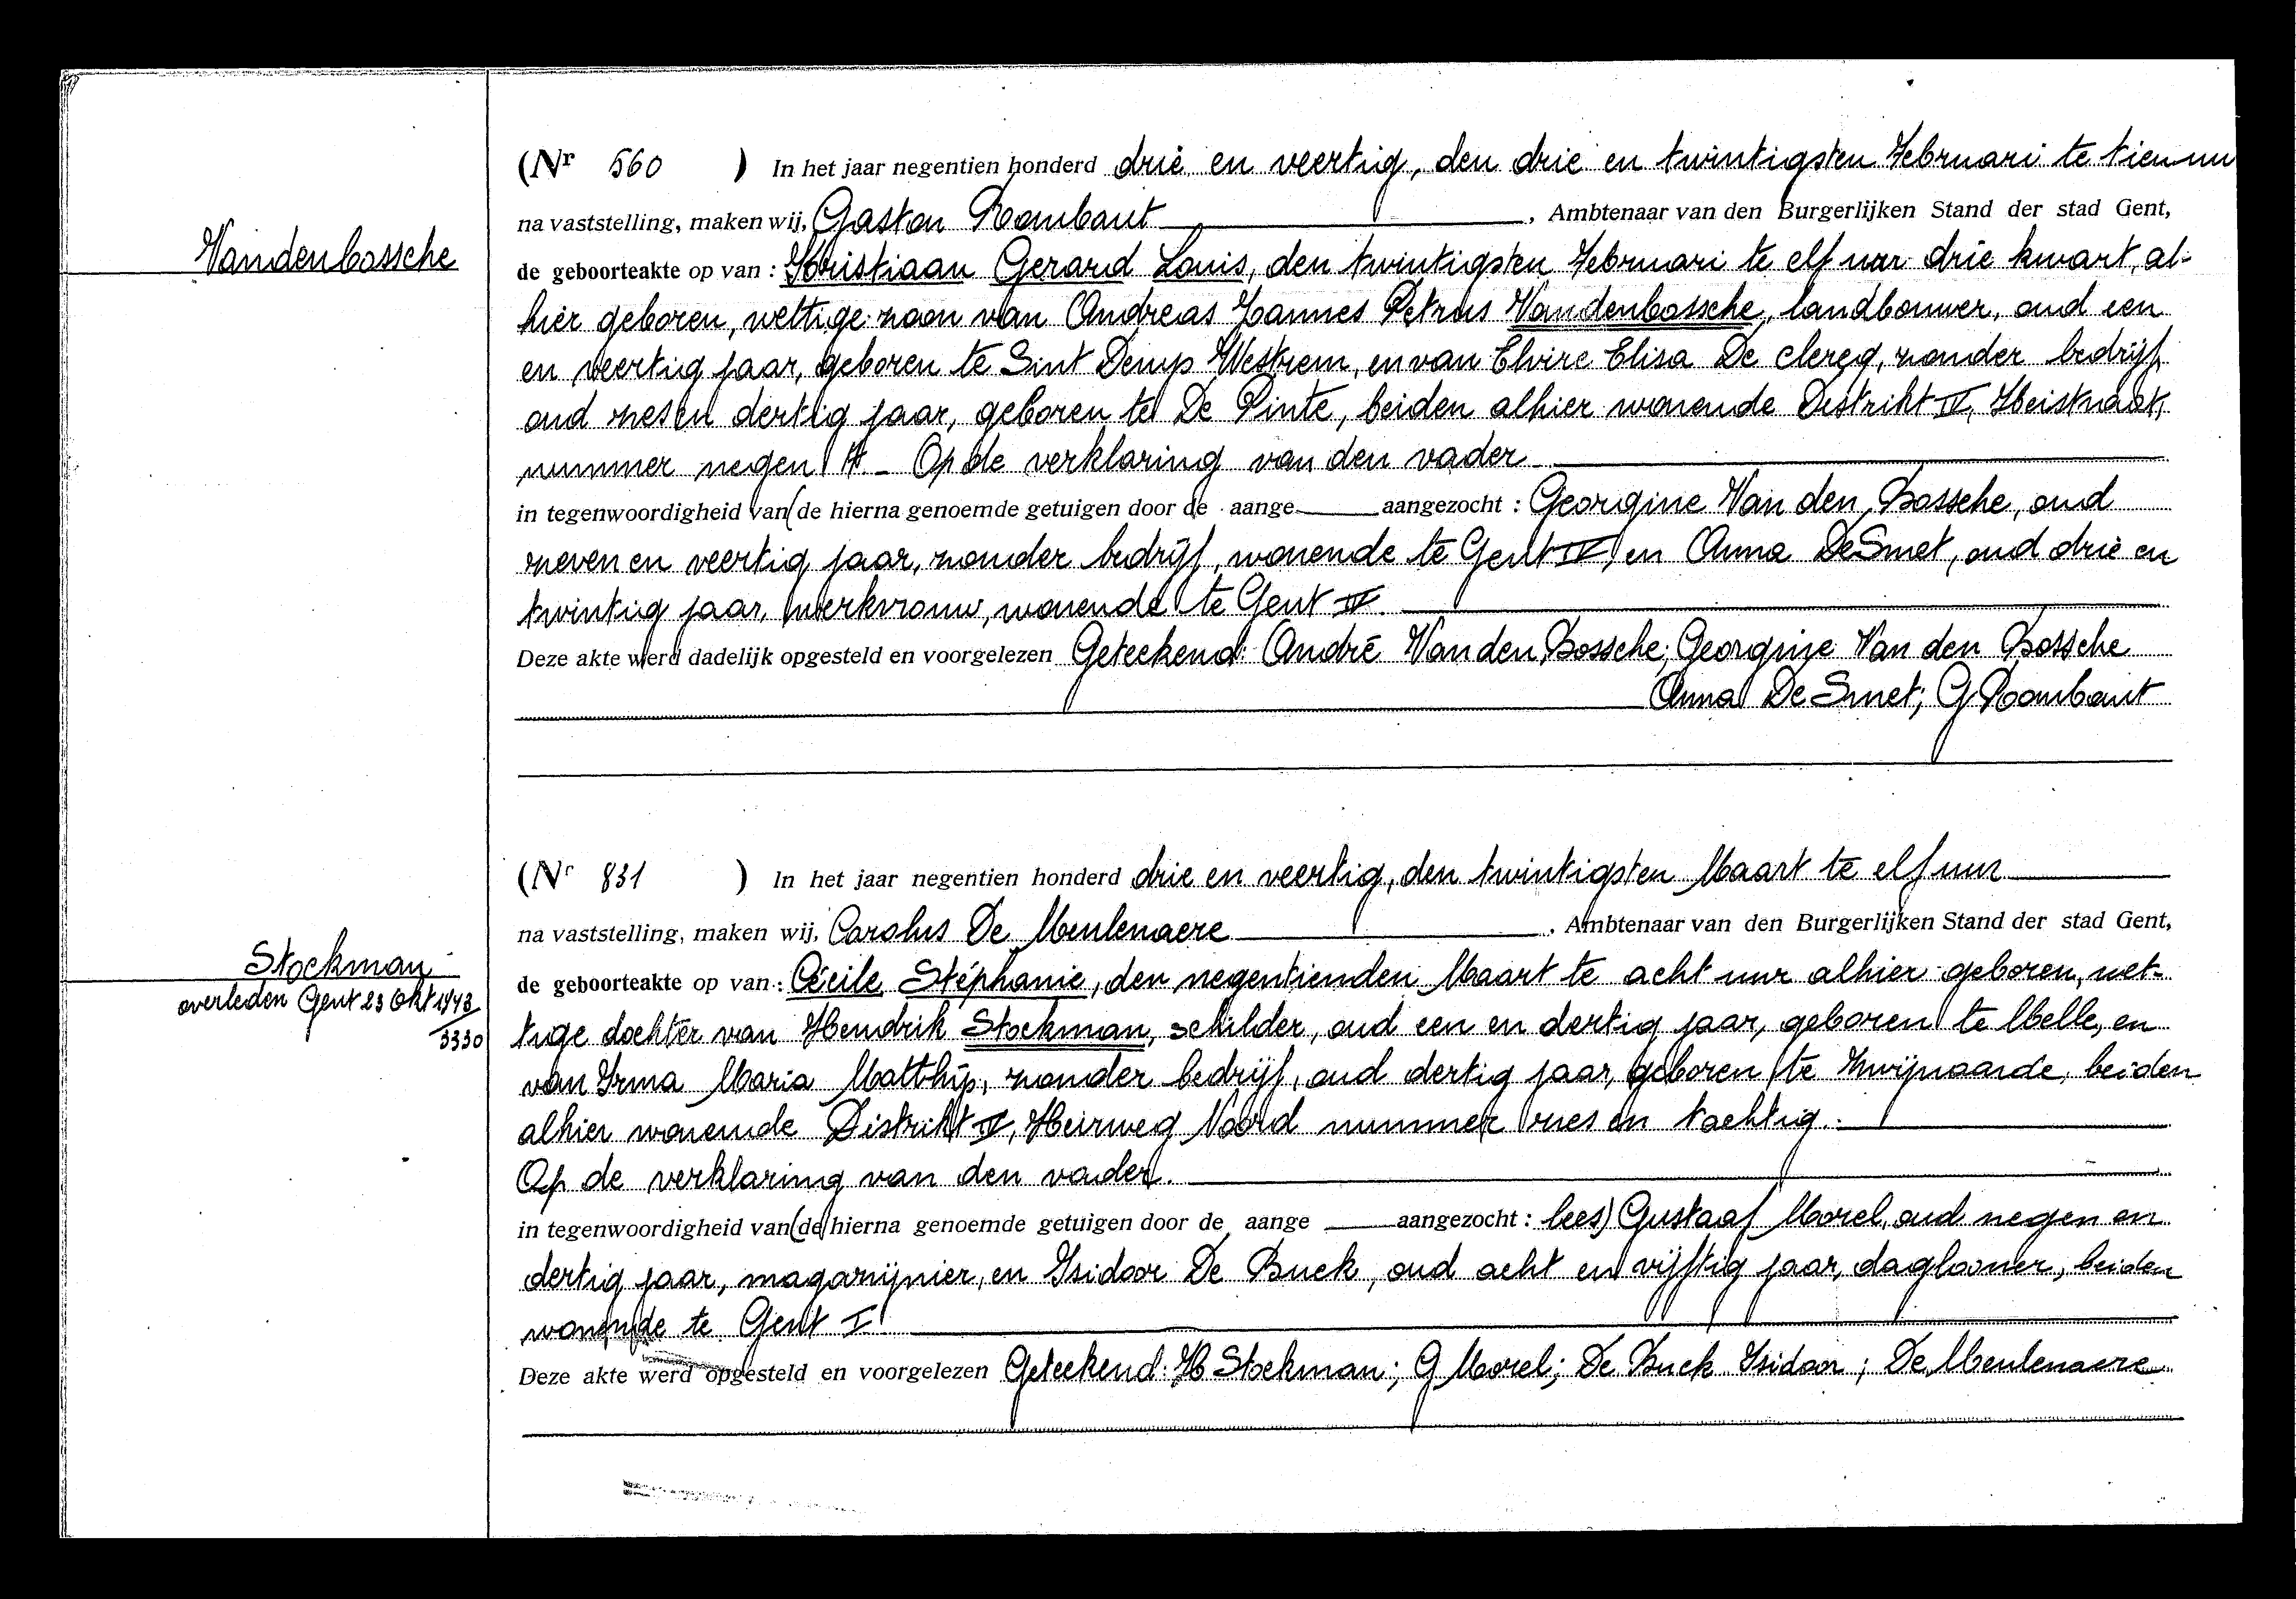 Vandenbossche
(Nr 560 ) In het jaar negentien honderd drie en veertig, den drie en twintigsten Februari te tien uu
na vaststelling, maken wij, Gaston Rombaut, Ambtenaar van den Burgerlijken Stand der stad Gent,
de geboorteakte op van : Kristiaan Gerard Louis, den twintigsten Februari te elf uur drie kwart, al-
hier geboren, wettige zoon van Andreas Joannes Petrus Vandenbossche, landbouwer, oud een
en veertig jaar, geboren te Sint Denijs Westrem, en van Elvire Elisa De clercq, zonder bedrijf
oud zes en dertig jaar, geboren te De Pinte, beiden alhier wonende Distrikt IV,
nummer negen A - Op de verklaring van den vader
in tegenwoordigheid van (de hierna genoemde getuigen door de aange aangezocht : Georgine Van den Bossche, oud
zeven en veertig jaar, zonder bedrijf, wonende te Gent IV, en Anna De Smet, oud drie en
twintig jaar, werkvrouw, wonende te Gent IV.
Deze akte werd dadelijk opgesteld en voorgelezen Geteekend: André Van den Bossche; Georgine Van den Bossche
Anna De Smet; G Rombaut
Stockman
overleden Gent 23 Okt 1943
3330
(Nr 831 ) In het jaar negentien honderd drie en veertig, den twintigsten Maart te elf uur
na vaststelling, maken wij, Carolus De Meulenaere, Ambtenaar van den Burgerlijken Stand der stad Gent,
de geboorteakte op van : Cécile Stéphanie, den negentienden Maart te acht uur alhier geboren, wet-
tige dochter van Hendrik Stockman, schilder, oud een en dertig jaar, geboren te Melle, en
van Irma Maria Matthijs, zonder bedrijf, oud dertig jaar, geboren te Zwijnaarde, beiden
alhier wonende Distrikt IV, Heirweg Noord nummer zes en tachtig.
Op de verklaring van den vader.
in tegenwoordigheid van (de hierna genoemde getuigen door de aange aangezocht : lees) Gustaaf Morel, oud negen en
dertig jaar, magazijnier, en Isidoor De Buck, oud acht en vijftig jaar, daglooner, beiden
wonende te Gent I
Deze akte werd opgesteld en voorgelezen Geteekend: H Stockman; G Morel; De Buck Isidoor; De Meulenaere